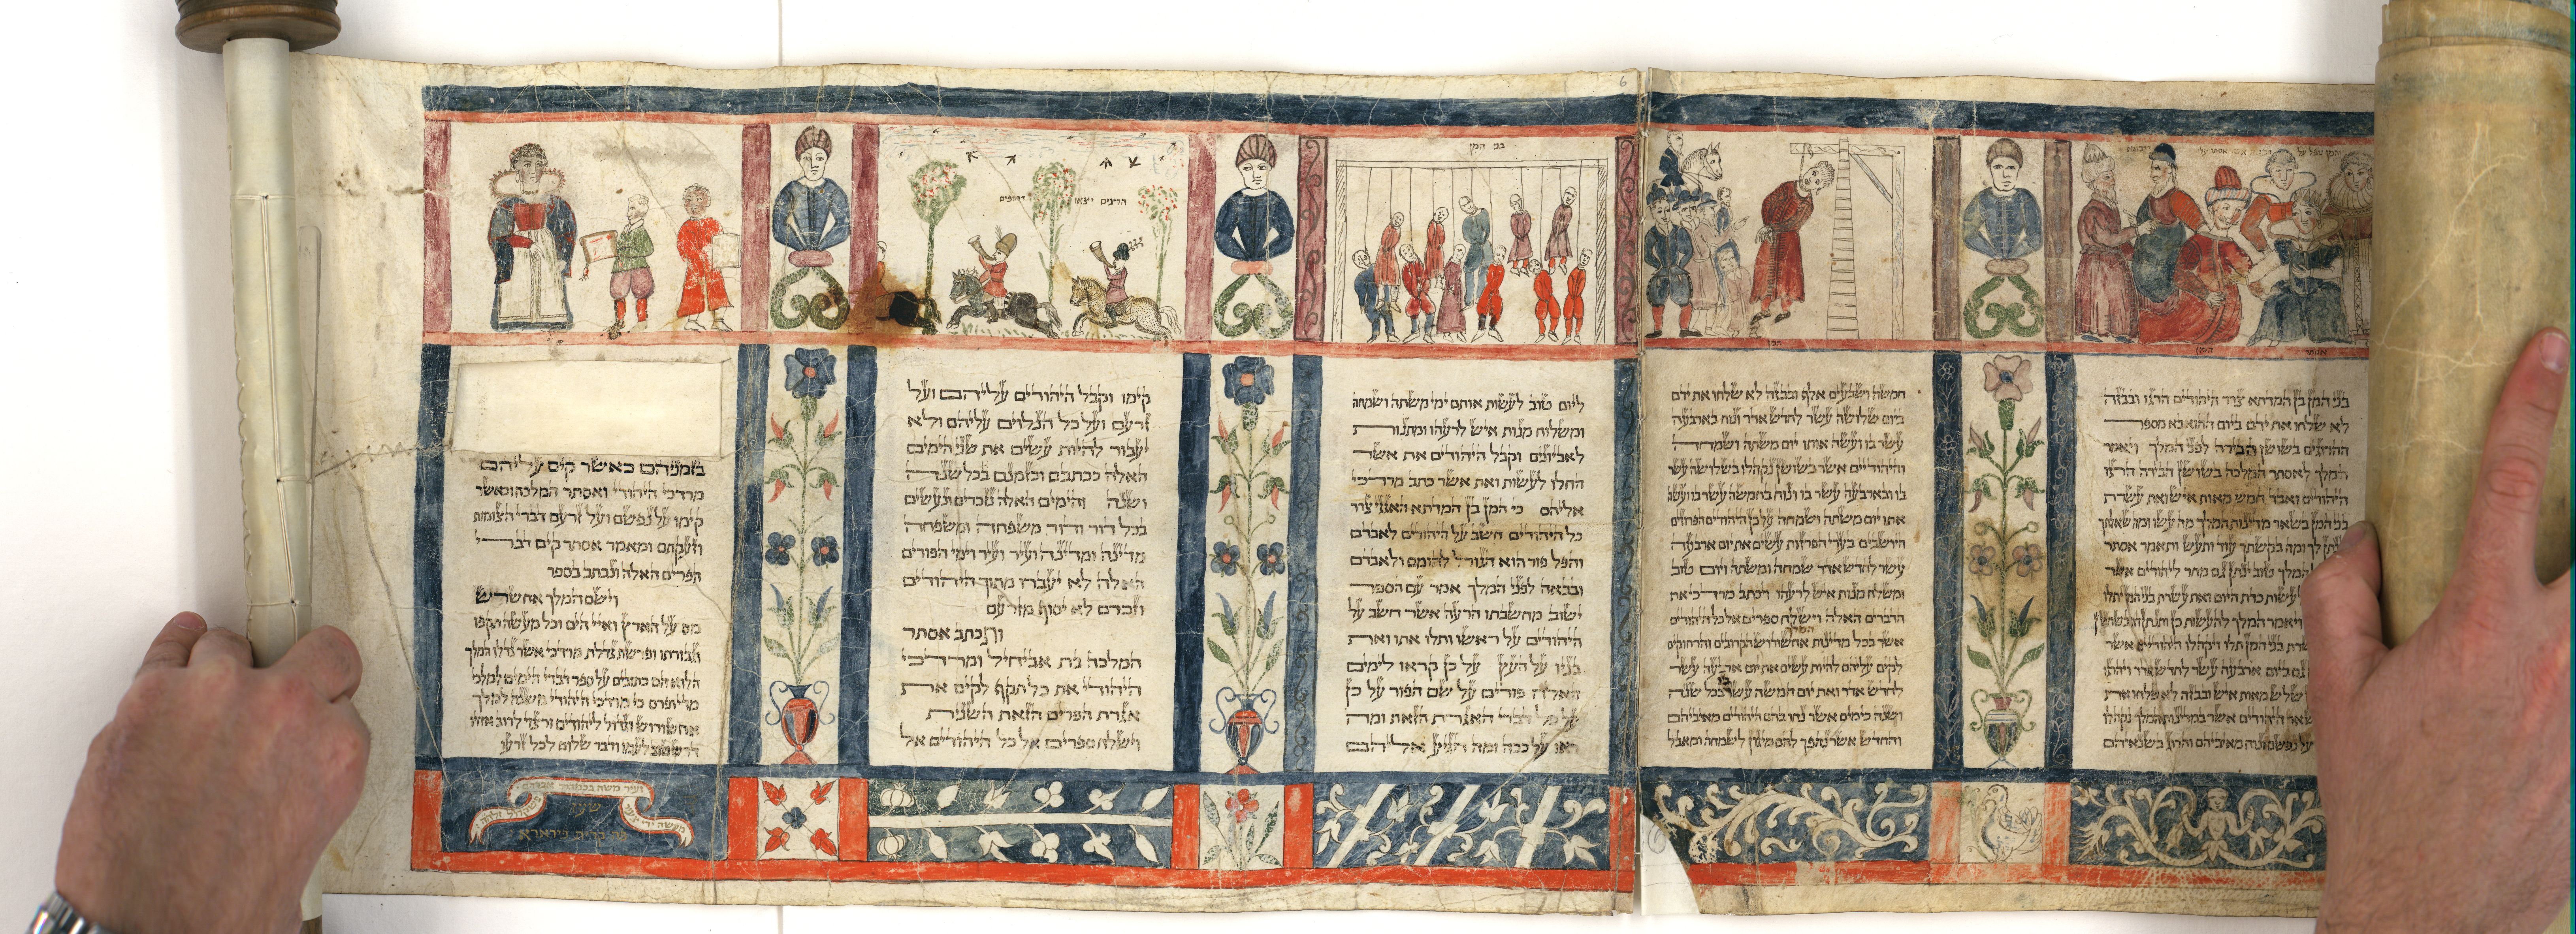 בני המן
המן
המן
אסתר
הורגים יוצאו דחופים
בני המן בן המדתא צרר היהודים הרגו ובבזה
לא שלחו את ידם ביום ההוא בא מספר
ההרוגים בשושן הבירה לפני המלך ויאמר
המלך לאסתר המלכה בשושן הבירה הרגו
היהודים ואבד חמש מאות איש ואת עשרת
בני המן בשאר מדינות המלך מה עשו ומה שאלתך
וינתן לך ומה בקשתך עוד ותעש ותאמר אסתר
המלך טוב ינתן גם מחר ליהודים אשר
לעשות כדת היום ואת עשרת בני המן יתלו
ויאמר המלך להעשות כן ותנתן דת בשושן
עשרת בני המן תלו ויקהלו היהודים אשר
גם ביום ארבעה עשר לחדש אדר ויהרגו
שלש מאות איש ובבזה לא שלחו את
היהודים אשר במדינות המלך נקהלו
על נפשם ונוח מאיביהם והרוג בשנאיהם
חמשה ושבעים אלף ובבזה לא שלחו את ידם
ביום שלושה עשר לחדש אדר ונוח בארבעה
עשר בו ועשה אותו יום משתה ושמחה
והיהודיים אשר בשושן נקהלו בשלושה עשר
בו ובארבעה עשר בו ונוח בחמשה עשר בו ועשה
אתו יום משתה ושמחה על כן היהודים הפרוזים
היושבים בערי הפרזות עשים את יום ארבעה
עשר לחדש אדר שמחה ומשתה ויום טוב
ומשלח מנות איש לרעהו ויכתב מרדכי את
הדברים האלה וישלח ספרים אל כל היהודים
אשר בכל מדינות המלך אחשורוש הקרובים והרחוקים
לקים עליהם להיות עשים את יום ארבעה עשר
לחדש אדר ואת יום חמשה עשר בו בכל שנה
ושנה כימים אשר נחו בהם היהודים מאיביהם
והחדש אשר נהפך להם מיגון לשמחה ומאבל
ליום טוב לעשות אותם ימי משתה ושמחה
ומשלוח מנות איש לרעהו ומתנות
לאביונים וקבל היהודים את אשר
החלו לעשות ואת אשר כתב מרדכי
אליהם כי המן בן המדתא האגגי צרר
כל היהודים חשב על היהודים לאבדם
והפל פור הוא הגורל להומם ולאבדם
ובבאה לפני המלך אמר עם הספר
ישוב מחשבתו הרעה אשר חשב על
היהודים על ראשו ותלו אתו ואת
בניו על העץ על כן קראו לימים
האלה פורים על שם הפור על כן
על כל דברי האגרת הזאת ומה
ראו על ככה ומה הגיע אליהם
קימו וקבל היהודים עליהם ועל
זרעם ועל כל הנלוים עליהם ולא
יעבור להיות עשים את שני הימים
האלה ככתבם וכזמנם בכל שנה
ושנה והימים האלה נזכרים ונעשים
בכל דור ודור משפחה ומשפחה
מדינה ומדינה ועיר ועיר וימי הפורים
האלה לא יעברו מתוך היהודים
וזכרם לא יסוף מזרעם
ותכתב אסתר
המלכה בת אביחיל ומרדכי
היהודי את כל תקף לקים את
אגרת הפרים הזאת השנית
וישלח ספרים אל כל היהודים אל
בזמניהם כאשר קים עליהם
מרדכי היהודי ואסתר המלכה וכאשר
קימו על נפשם ועל זרעם דברי הצומות
וזעקתם ומאמר אסתר קים דברי
הפרים האלה ונכתב בספר
וישם המלך אחשרש
מס על הארץ ואיי הים וכל מעשה תקפו
וגבורתו ופרשת גדלת מרדכי אשר גדלו המלך
הלוא הם כתובים על ספר דברי הימים למלכי
מדי ופרס כי מרדכי היהודי משנה למלך
אחשורוש וגדול ליהודים ורצוי לרוב אחיו
דרש טוב לעמו ודבר שלום לכל זרעו
6